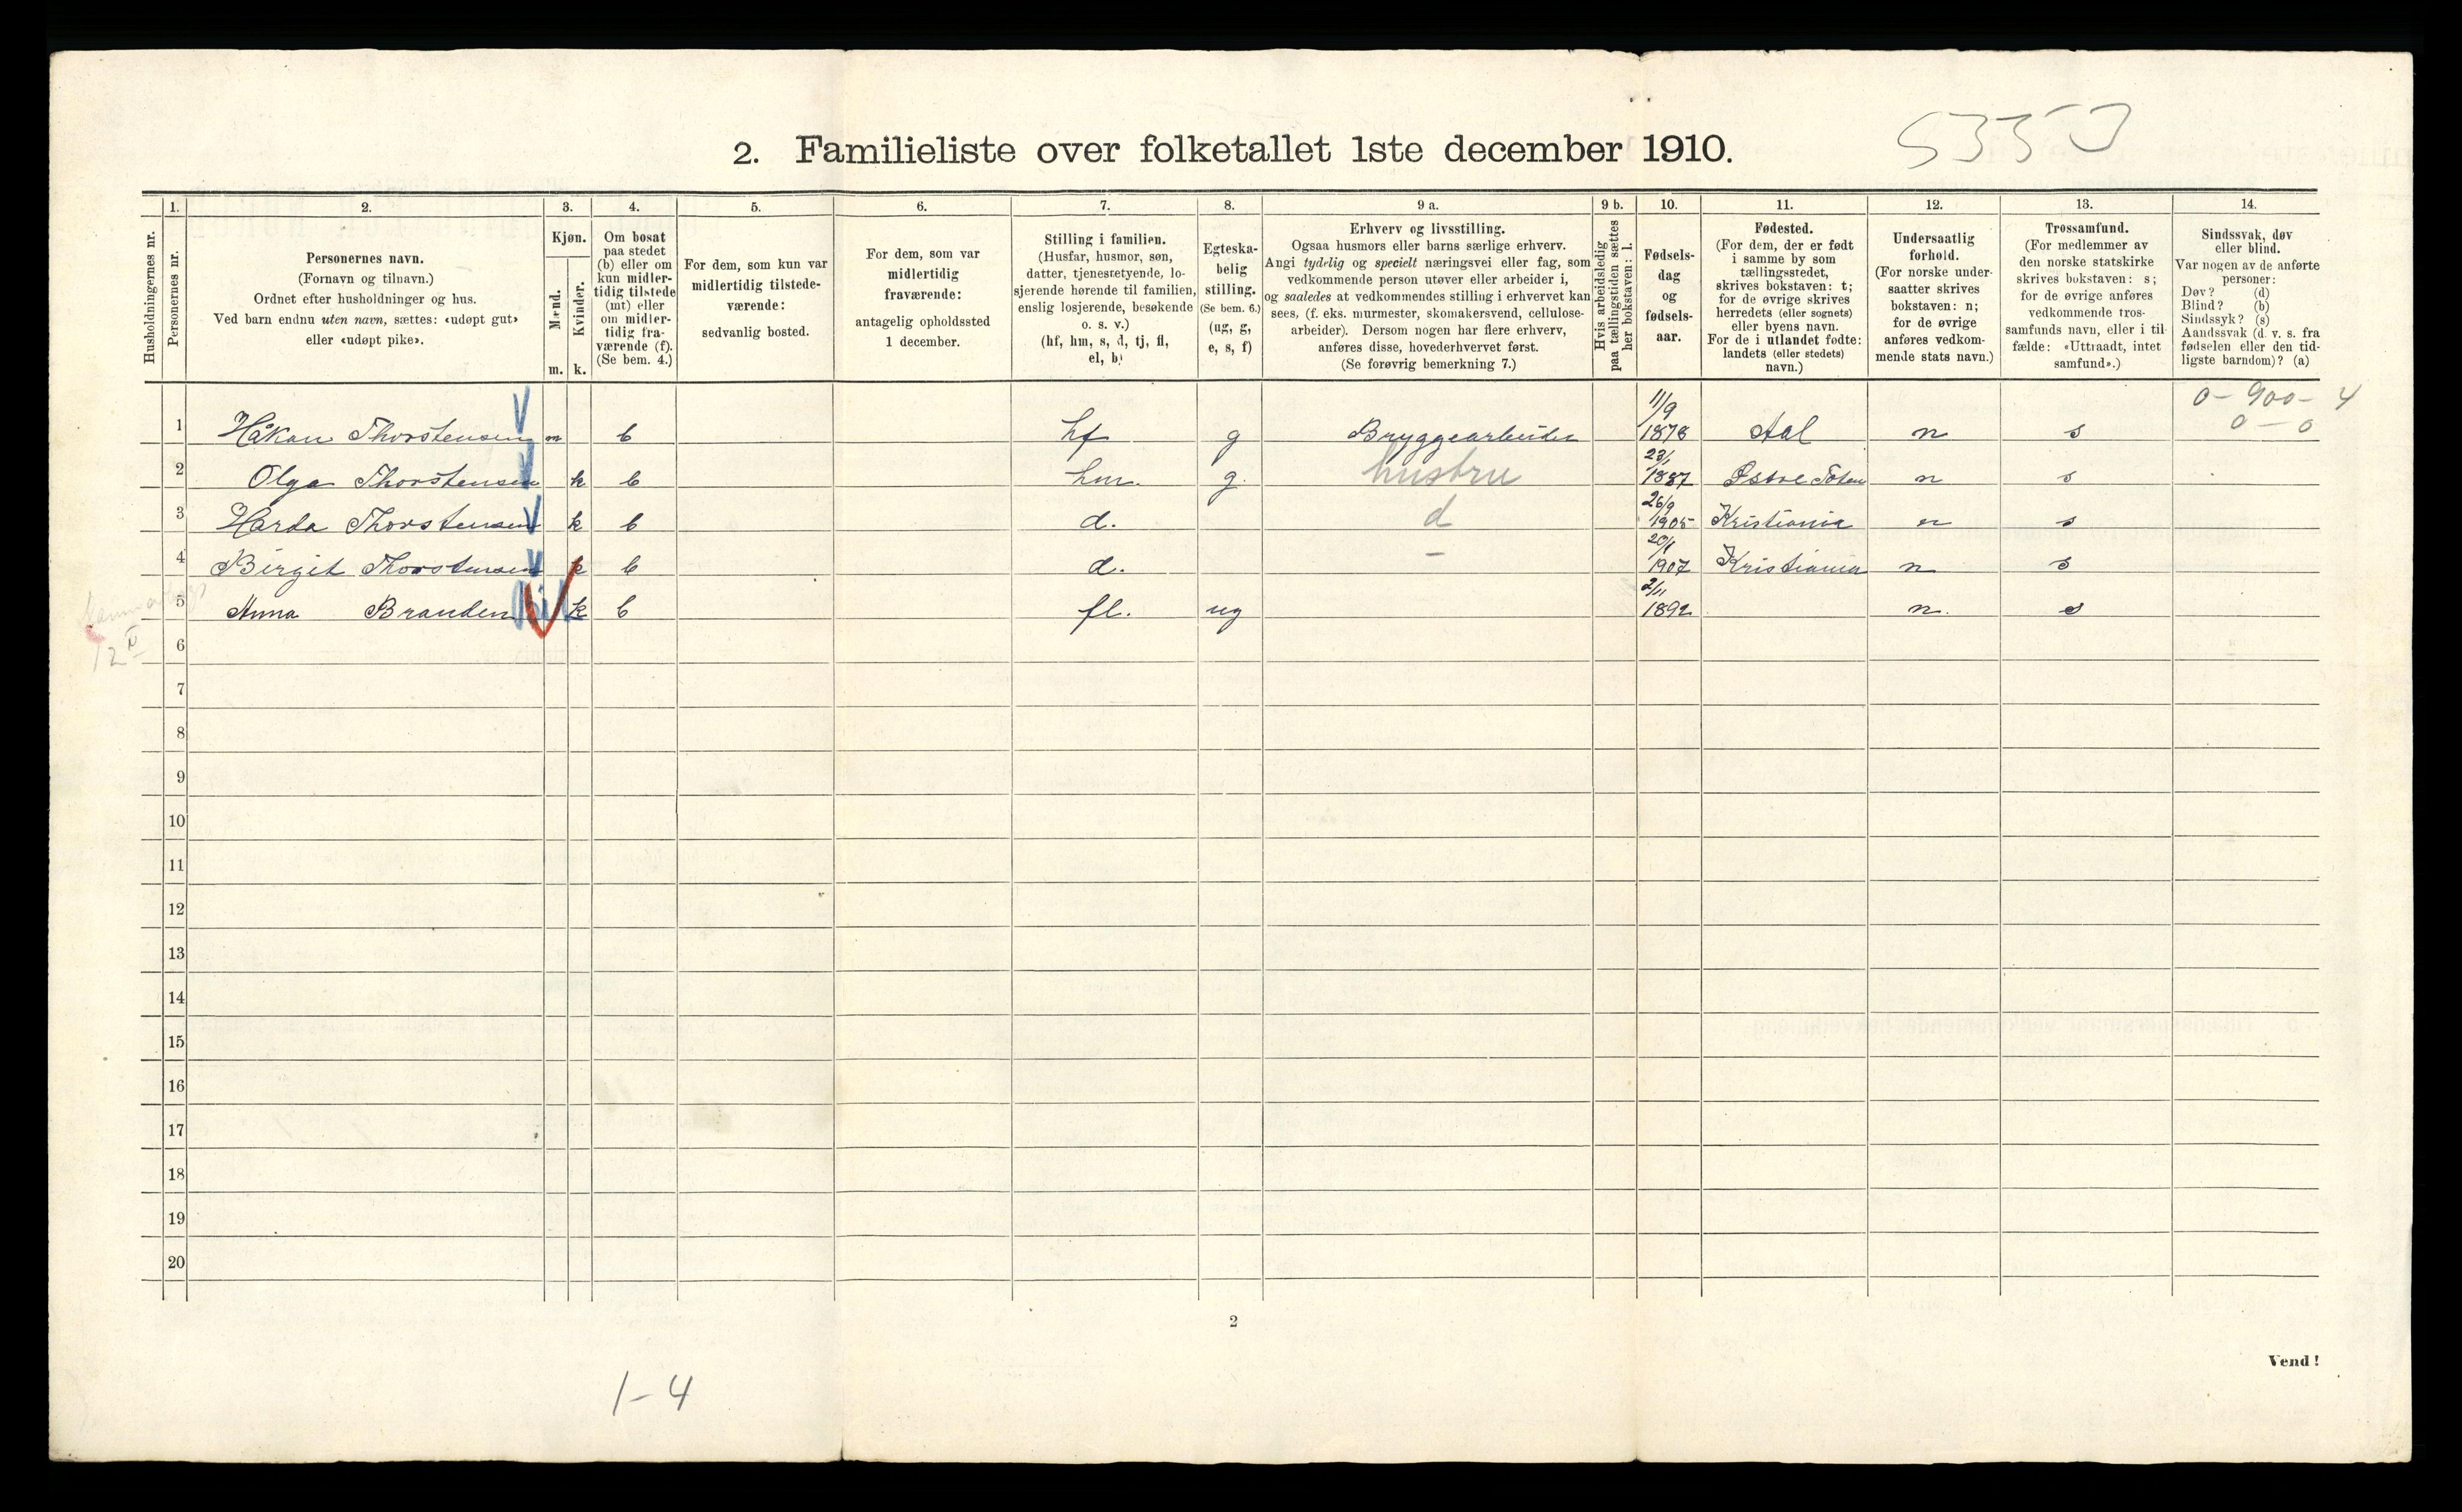 5353
2. Familieliste over folketallet 1ste december 1910.
Husholdningernes nr.
1.
Personernes nr.
2.
Personernes navn.
(Fornavn og tilnavn.)
Ordnet efter husholdninger og hus.
Ved barn endnu uten navn, sættes: «udøpt gut»
eller «udøpt pike».
3.
Kjøn.
Mænd.
m.
Kvinder.
k.
4.
Om bosat
paa stedet
(b) eller om
kun midler-
tidig tilstede
(mt) eller
om midler-
tidig fra-
værende (f).
(Se bem. 4.)
5.
For dem, som kun var
midlertidig tilstede-
værende:
sedvanlig bosted.
6.
For dem, som var
midlertidig
fraværende:
antagelig opholdssted
1 december.
7.
Stilling i familien.
(Husfar, husmor, søn,
datter, tjenestetyende, lo-
sjerende hørende til familien,
enslig losjerende, besøkende
o. s. v.)
(hf, hm, s, d, tj, fl,
el, b)
8.
Egteska-
belig
stilling.
(Se bem. 6.)
(ug, g,
e, s, f)
9 a.
Erhverv og livsstilling.
Ogsaa husmors eller barns særlige erhverv.
Angi tydelig og specielt næringsvei eller fag, som
vedkommende person utøver eller arbeider i,
og saaledes at vedkommendes stilling i erhvervet kan
sees, (f. eks. murmester, skomakersvend, cellulose-
arbeider). Dersom nogen har flere erhverv,
anføres disse, hovederhvervet først.
(Se forøvrig bemerkning 7.)
9 b.
Hvis arbeidsledig
paa tællingstiden sættes
her bokstaven: l.
10.
Fødsels-
dag
og
fødsels-
aar.
11.
Fødested.
(For dem, der er født
i samme by som
tællingsstedet,
skrives bokstaven: t;
for de øvrige skrives
herredets (eller sognets)
eller byens navn.
For de i utlandet fødte:
landets (eller stedets)
navn.)
12.
Undersaatlig
forhold.
(For norske under-
saatter skrives
bokstaven: n;
for de øvrige
anføres vedkom-
mende stats navn.)
13.
Trossamfund.
(For medlemmer av
den norske statskirke
skrives bokstaven: s;
for de øvrige anføres
vedkommende tros-
samfunds navn, eller i til-
fælde: «Uttraadt, intet
samfund».)
14.
Sindssvak, døv
eller blind.
Var nogen av de anførte
personer:
Døv? (d)
Blind? (b)
Sindssyk? (s)
Aandssvak (d. v. s. fra
fødselen eller den tid-
ligste barndom)? (a)
0 - 900 - 4
0 - 0
1 Håkon Thorstensen m b hf g Bryggearbeider 11/9 1878 Aal n s
2 Olga Thorstensen k b hm. g. hustru 23/1 1887 Østre Toten n s
3 Harda Thorstensen k b d. d 26/9 1905 Kristiania n s
4 Birgit Thorstensen k b d. - 20/1 1907 Kristiania n s
5 Anna Branden k b fl. ug 2/11 1892 n. s
6
7
8
9
10
11
12
13
14
15
16
17
18
19
20
2
Vend!
1-4